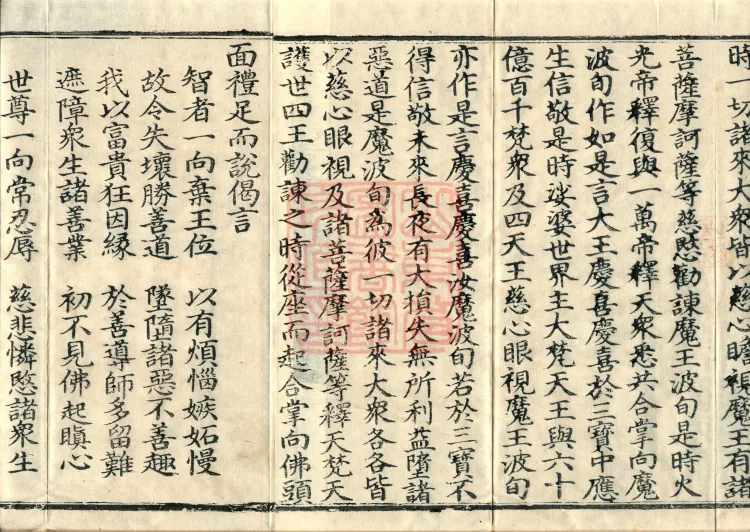 時一切諸來大衆皆以慈心瞻視魔王有諸
菩薩摩訶薩等慈愍勸諫魔王波旬是時火
光帝釋復與一萬帝釋天衆悉共合掌向魔
波旬作如是言大王慶喜慶喜於三寶中應
生信敬是時娑婆世界主大梵天王與六十
億百千梵衆及四天王慈心眼視魔王波旬
亦作是言慶喜慶喜汝魔波旬若於三寶不
得信敬未來長夜有大損失無所利益墮諸
惡道是魔波旬為彼一切諸來大衆各各皆
以慈心眼視及諸菩薩摩訶薩等釋天梵天
護世四王勸諫之時從座而起合掌向佛頭
面禮足而說偈言
智者一向棄王位 以有煩惱嫉妬慢
故令失壞勝善道 墜墮諸惡不善趣
我以富貴狂因緣 於善導師多留難
遮障衆生諸善業 初不見佛起瞋心
世尊一向常忍辱 慈悲憐愍諸衆生